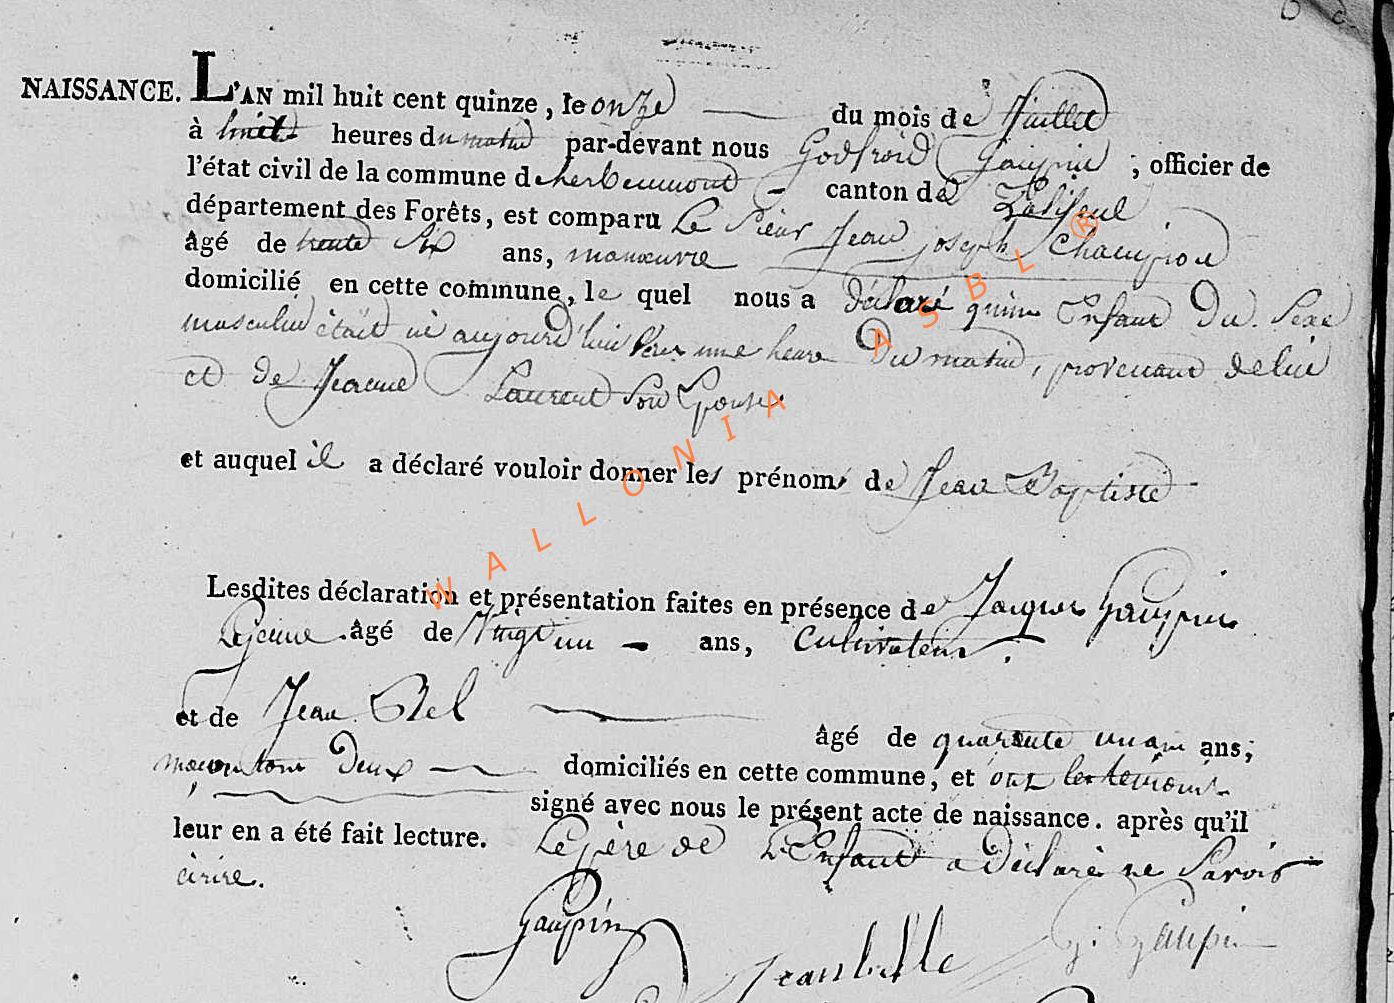 NAISSANCE. L'AN mil huit cent quinze, le onze du mois de Juillet
à huit heures du matin par-devant nous Godfroid Gaupin ; officier de
l'état civil de la commune d'herbeumont canton de Paliseul
département des Forêts, est comparu Le Sieur Jean joseph Champion
âgé de trente Six ans, manœuvre
domicilié en cette commune, le quel nous a déclaré qu'un Enfant Du Sexe
masculin était né aujourd'hui vers une heure Du matin, provenant de lui
et de Jeanne Laurent Son Epouse.
et auquel il a déclaré vouloir donner les prénoms de Jean Baptiste
Lesdites déclaration et présentation faites en présence de Jacques Gaupin
Lejeune âgé de Vingt un ans, Cultivateur.
et de Jean âgé de quarante un ans ans,
tous Deux domiciliés en cette commune, et ont les temoins
signé avec nous le présent acte de naissance. après qu'il
leur en a été fait lecture. Le père de L'Enfant a Déclaré ne Savoir
écrire.
Gaupin G: Gaupin
WALLONIA ASBL ®